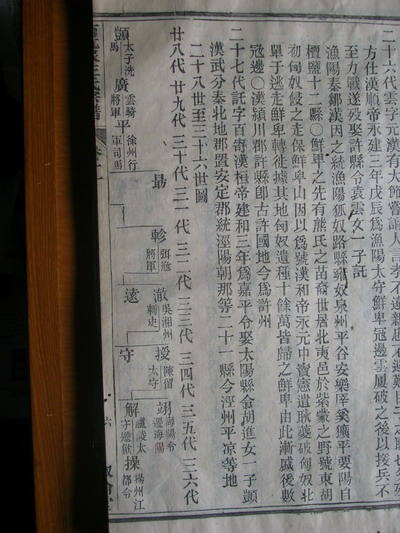 二十六代雲字元漢有大節嘗誚人言孝不違親忠不
方仕漢順帝永建三年戊辰爲漁陽太守鮮卑寇邊雲厦破之後以援兵不
至力戰遂歿娶許縣令袁雲女一子託
漁陽秦郡漢因之統漁陽狐奴路縣雍奴泉州平谷安樂厗奚獷平要陽白
檀鹽十二縣〇鮮卑之先有熊氏之苗裔世居北夷邑於紫蒙之野號東胡
初匈奴餒之走保鮮卑山因以爲號漢和帝永元中竇憲遣耿夔破匈奴北
單于逃走鮮卑轉徙據其地匈奴遺種十餘萬皆歸之鮮卑由此漸盛後數
寇邊〇漢潁川郡許縣卽古許國地今爲許州
二十七代託字百寄漢桓帝建和三年爲嘉平谷娶太陽縣令胡進女一子顗
漢武分秦北地郡置安定郡統涇陽朝那等二十一縣今涇州平凉等地
二十八世至三十六世圖
廿八代 廿九代 三十代 三一代 三二代 三三代 三四代 三五代 三六代
顗 太子洗馬
廣 雲騎將軍
平 徐州行軍司馬
最
軫 弭寇將軍
遠
澈 吳湘州轉史
守
授 陳留太守
解
翊 海陽令
廬陵太守遊獄
操 楊州江都令
六